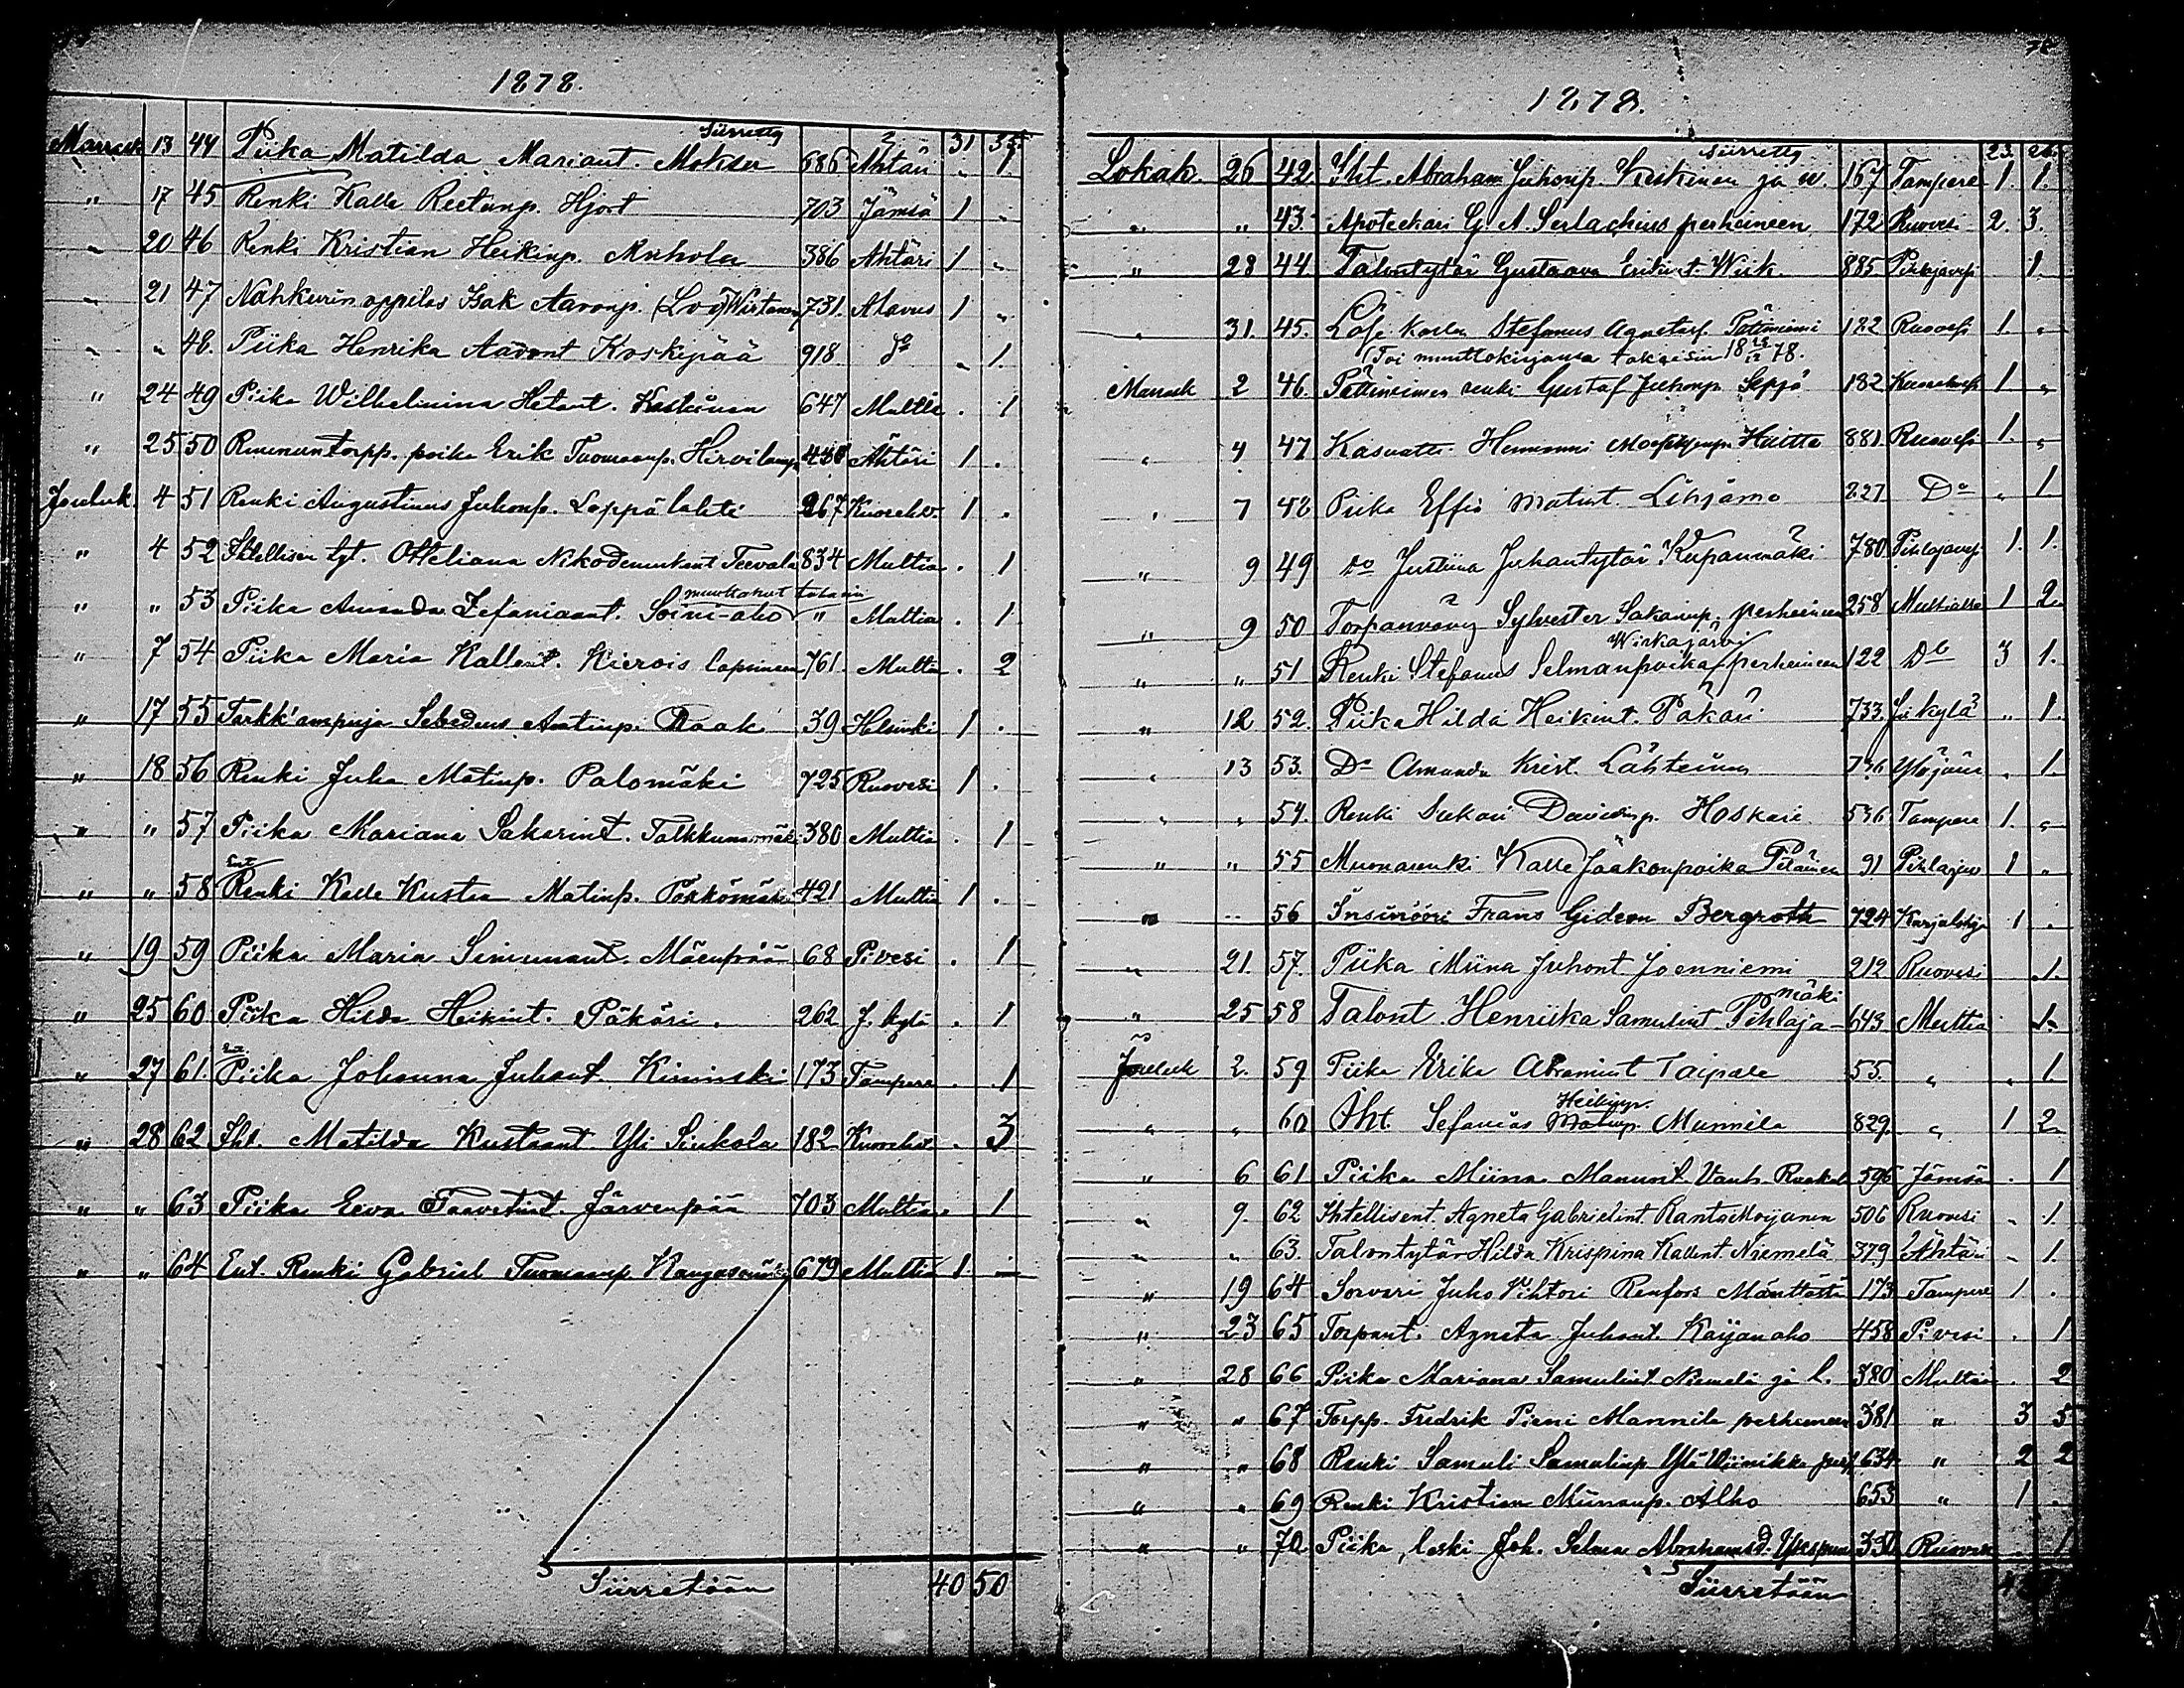 1878.
Siirretty 31 35
Marrask 13 44 Piika Matilda Mariant. Moksu 686 Ähtäri „ 1
„ 17 45 Renki Kalle Reetanp. Hjort 703 Jämsä 1 „
„ 20 46 Renki Kristian Heikinp. 386 Ähtäri 1 „
„ 21 47 Nahkurin oppilas Isak Aaronp. (Loo) Wirtanen 731. Alavus 1 „
„ „ 48. Piika Henrika Aadont Koskipää 918. Do „ 1.
„ 24 49 Piika Wilhelmina Hetant. Koskinen 647 Multia . 1
„ 25 50 Ruunun torpp. poika Erik Tuomaanp. Hirvilamp. Ähtäri 1 .
Jouluk. 4 51 Renki Augustinus Juhonp. Leppälahti 267 Kuorehv. 1 .
„ 4 52 Ittellisen tyt. Otteliana Nikodemuksent Teevala 834 Multia . 1
muuttokirjat takaisin
„ „ 53 Piika Amanda Zefaniaant. Soini-aho „ Multia . 1
„ 7 54 Piika Maria Kallent. Kierois lapsineen 761. Multia . 2
„ 17 55 Tarkk'ampuja Sebedeus Antinp. Raak 39 Helsinki 1 .
„ 18 56 Renki Juha Matinp. Palomäki 725 Ruovesi 1 .
„ „ 57 Piika Mariana Sakarint. Talkkunamäki 380 Multia . 1
Ent.
„ „ 58 Renki Kalle Kustaa Matinp. Pökkömäki 421 Multia 1 .
„ 19 59 Piika Maria Simunant. Mäenpää 68 P:vesi . 1
„ 25 60 Piika Hilda Heikint. Päkäri. 262 J. kylä . 1
„ 27 61. Piika Johanna Juhant. Kiminski 173 Tampere . 1
„ 28 62 Iht. Matilda Kustaant Yli Sinkola 182 Kuorehv. . 3
„ „ 63 Piika Eeva Taavetint. Järvenpää 703 Multia . 1
„ „ 64 Ent. Renki Gabriel Tuomaanp. Kangasniemi 679 Multia 1 —
Siirretään 40 50
1878.
Siirretty 23. 26.
Lokak. 26 42. Iht. Abraham Juhonp. Keskinen ja w. 167 Tampere 1. 1.
„ „ 43. Apoteekari G. A. Serlachius perheineen 172 Ruovesi 2. 3.
„ 28 44 Talontytär Gustaava Erikint. Wiik 885 Pihlajavesi 1
„ 31. 45. Karlu Stefanus Agnetanp. Pättiniemi 182 Ruovesi 1. „
(Toi muuttokirjansa takaisin 18 78.
Marrask 2 46. Pättiniemen renki Gustaf Juhonp. Seppä 182 Kuorehvesi 1 „
„ 4 47 Kasvatti Hemmi Huitta 881. Ruovesi 1. „
„ 7 48 Piika Effia Matint. Lihjamo 227 Do „ 1
„ 9 49 Do Justiina Juhantytär Kupanmäki 780 Pihlajavesi 1. 1.
„ 9 50 Torpanvävy Sylvester Sakarinp. perheineen 258 Multialta 1 2.
Wirkajärvi
„ „ 51 Renki Stefanus Selmanpoika perheineen 122 Do 3 1.
„ 12 52. Piika Hilda Heikint. Päkäri 733. J:kylä „ 1.
„ 13 53. Do Amanda Krist. Lähteinen 736 Ylöjärvi „ 1.
„ „ 54. Renki Oskari Davidinp. Hoskari 536 Tampere 1. „
„ „ 55 Muonarenki Kalle Jaakonpoika Peräinen 91 Pihlajav 1 „
„ „ 56 Insinööri Frans Gideon Bergroth 724 Karjalohja 1 .
„ 21. 57. Piika Miina Juhont Joenniemi 212 Ruovesi .1.
mäki
„ 25 58 Talont. Henriika Samulint Pihlaja- 643 Multia 1.
Jouluk 2. 59 Piika Erika Abramint Taipale 55. „ „ 1.
Heikinp.
„ „ 60 Iht. Sefanias Matinp. Munnila 829. „ 1 2
„ 6 61 Piika Miina Manunt. Vanh. Ruokol 596 Jämsä . 1
„ 9. 62 Ihtellisent. Agneta Gabrielint. Ranta Moijanen 506 Ruovesi „ 1.
„ „ 63. Talontytär Hilda Krispina Kallent. Niemelä 379 Ähtäri „ 1.
„ 19 64 Sorvari Juho Vihtori Renfors Mänttästä 173 Tampere 1 .
„ 23 65 Torpant. Agneta Juhant. Kaijanaho 458 P:vesi . 1
„ 28 66 Piika Mariana Samulint. Niemelä ja l. 380 Multia . 2
„ „ 67 Torpp. Fredrik Pieni Mannila perheineen 381 „ 3 5
„ „ 68 Renki Samuli Samulinp. Ylä Wiinikka perh. 634 „ 2 2
„ „ 69 Renki Kristian Miinanp. Alho 653 „ 1 .
„ „ 70 Piika, leski Joh. Selma Abrahamsd. Ruovesi 1
Siirretään